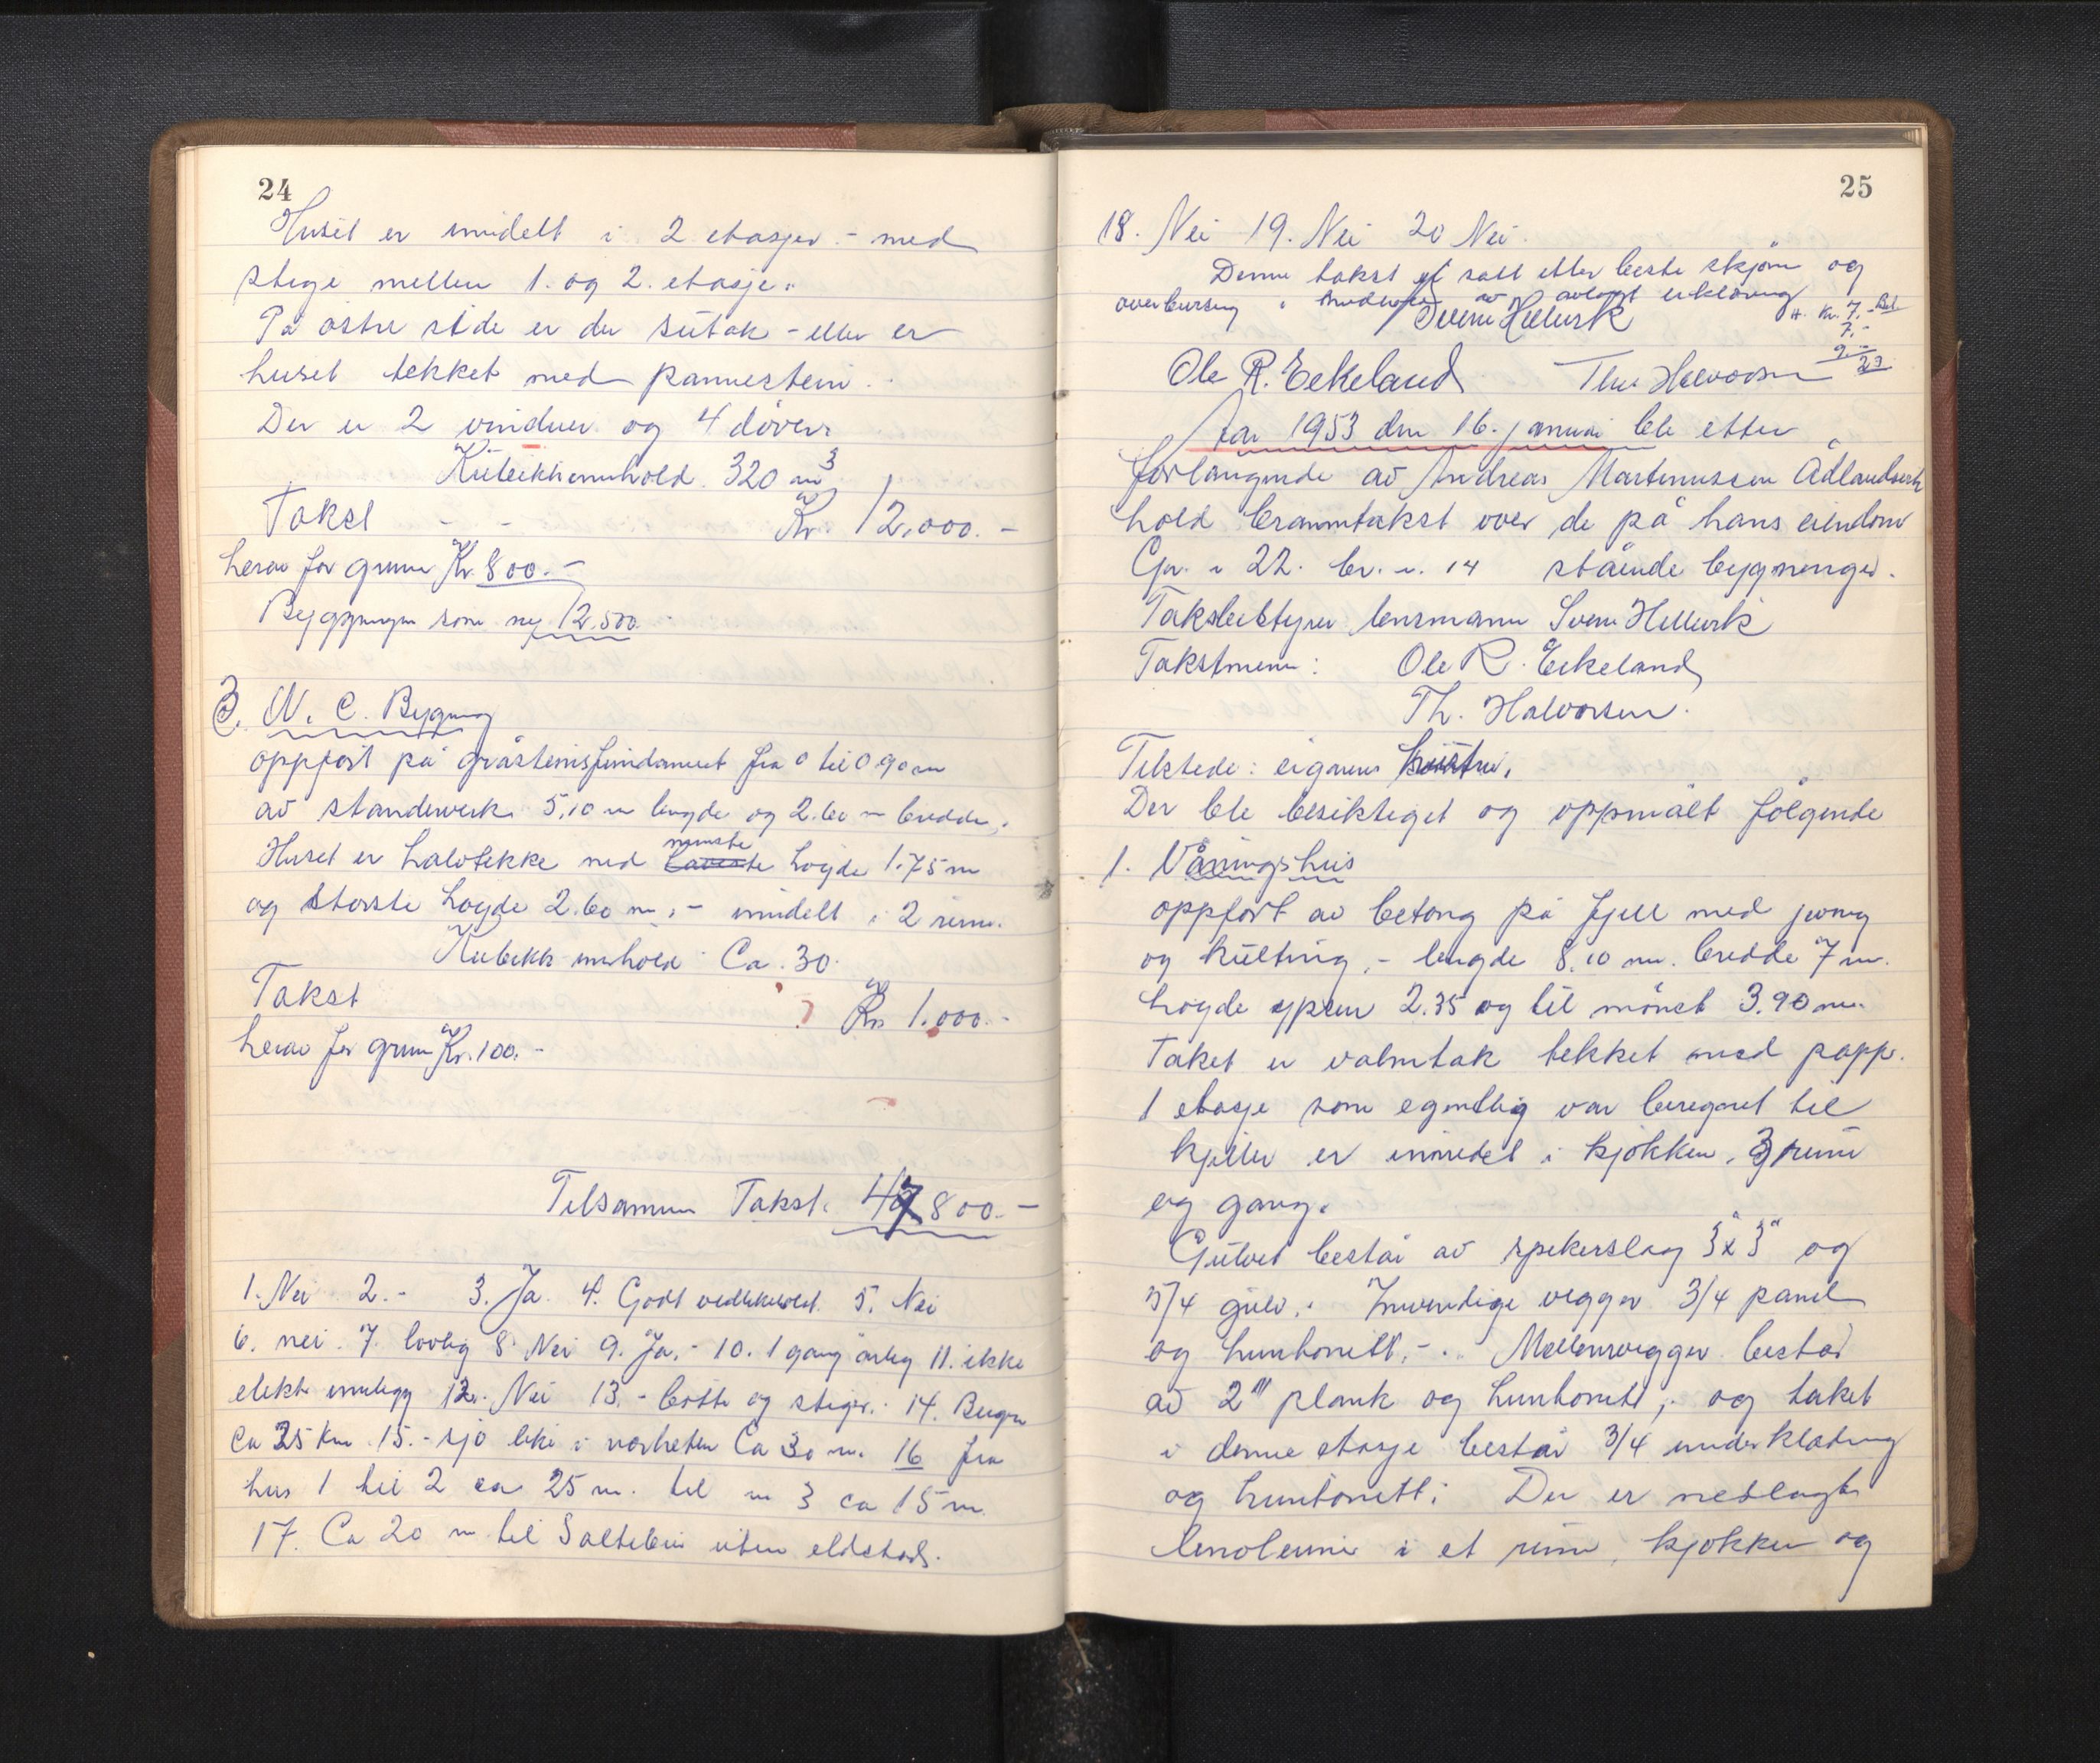 24
Huset er inndelt i 2 etasjer - med
stege mellem 1. og 2. etasje.
På østre side er der sutak - eller er
huset tekket med pannestein.
Der er 2 vinduer og 4 dører
Kubikkinnhold. 320 m3
Takst - - Kr. 12,000.-
herav for grunn Kr. 800.-
Byggningen som ny 12,500
3. W. C. Bygning
oppført på gråsteinsfundament fra 0 til 0.90 m
av standerverk 5,10 m lengde og 2.60 m bredde,
Huset er halvtekke med laveste minste høyde 1.75 m
og største høyde 2.60 m, - inndelt i 2 rum.
Kubikk innhold Ca. 30.
Takst Kr. 1.000.-
herav for grunn Kr. 100.-
Tilsammen Takst. 47800.-
1. Nei 2.- 3. Ja 4. Godt vedlikeholdt. 5. Nei
6. nei. 7. lovlig 8. Nei 9. Ja.- 10. 1 gang årleg 11. ikke
elektr. innlegg 12. Nei 13.- bøtte og stiger. 14. Bergen
Ca 35 Km 15.- sjø like i nærheten Ca 30 m. 16 fra
hus 1 til 2 ca 25 m. til " 3 ca 15 m.
17. Ca 20 m til Saltebu uten eldsted.
25
18. Nei 19. Nei 20 Nei.
Denne takst er satt etter beste skjønn og
overbevisning i henhold av avlagt erklæring H. Kr. 7.-
7.-
9.-
23
Svein Hellevik
Ole R. Eikeland Thv Halvorsen
Aar 1953 den 16. januar ble etter
forlangende av Andreas Martinussen Ådlandsvik
hold branntakst over de på hans eiendom
Gr. n 22. br. n. 14 stående bygninger.
Takstbestyrer lensmann Svein Hellevik
Takstmenn: Ole R. Eikeland
Th. Halvorsen.
Tilstede: eigarens hustru.
Der ble besiktiget og oppmålt følgende
1. Våningshus
oppført av betong på fjell med
og kulting, - lengde 8.10 m. bredde 7 m.
høyde 2.35 og til mønet 3.90 m.
Taket er valmtak tekket med papp.
1 etasje som egentlig var beregnet til
kjeller er innredet i kjøkken, 3 rum
og gang.
Gulvet består av spikerslag 3"x3" og
5/4 gulv. Innvendige vegger 3/4 panel
og huntonitt, -. Mellemvegger består
av 2" plank og huntonitt, og taket
i denne etasje består 3/4 underkledning
og huntonitt. Der er nedlagt
linoleum i et rum, kjøkken og